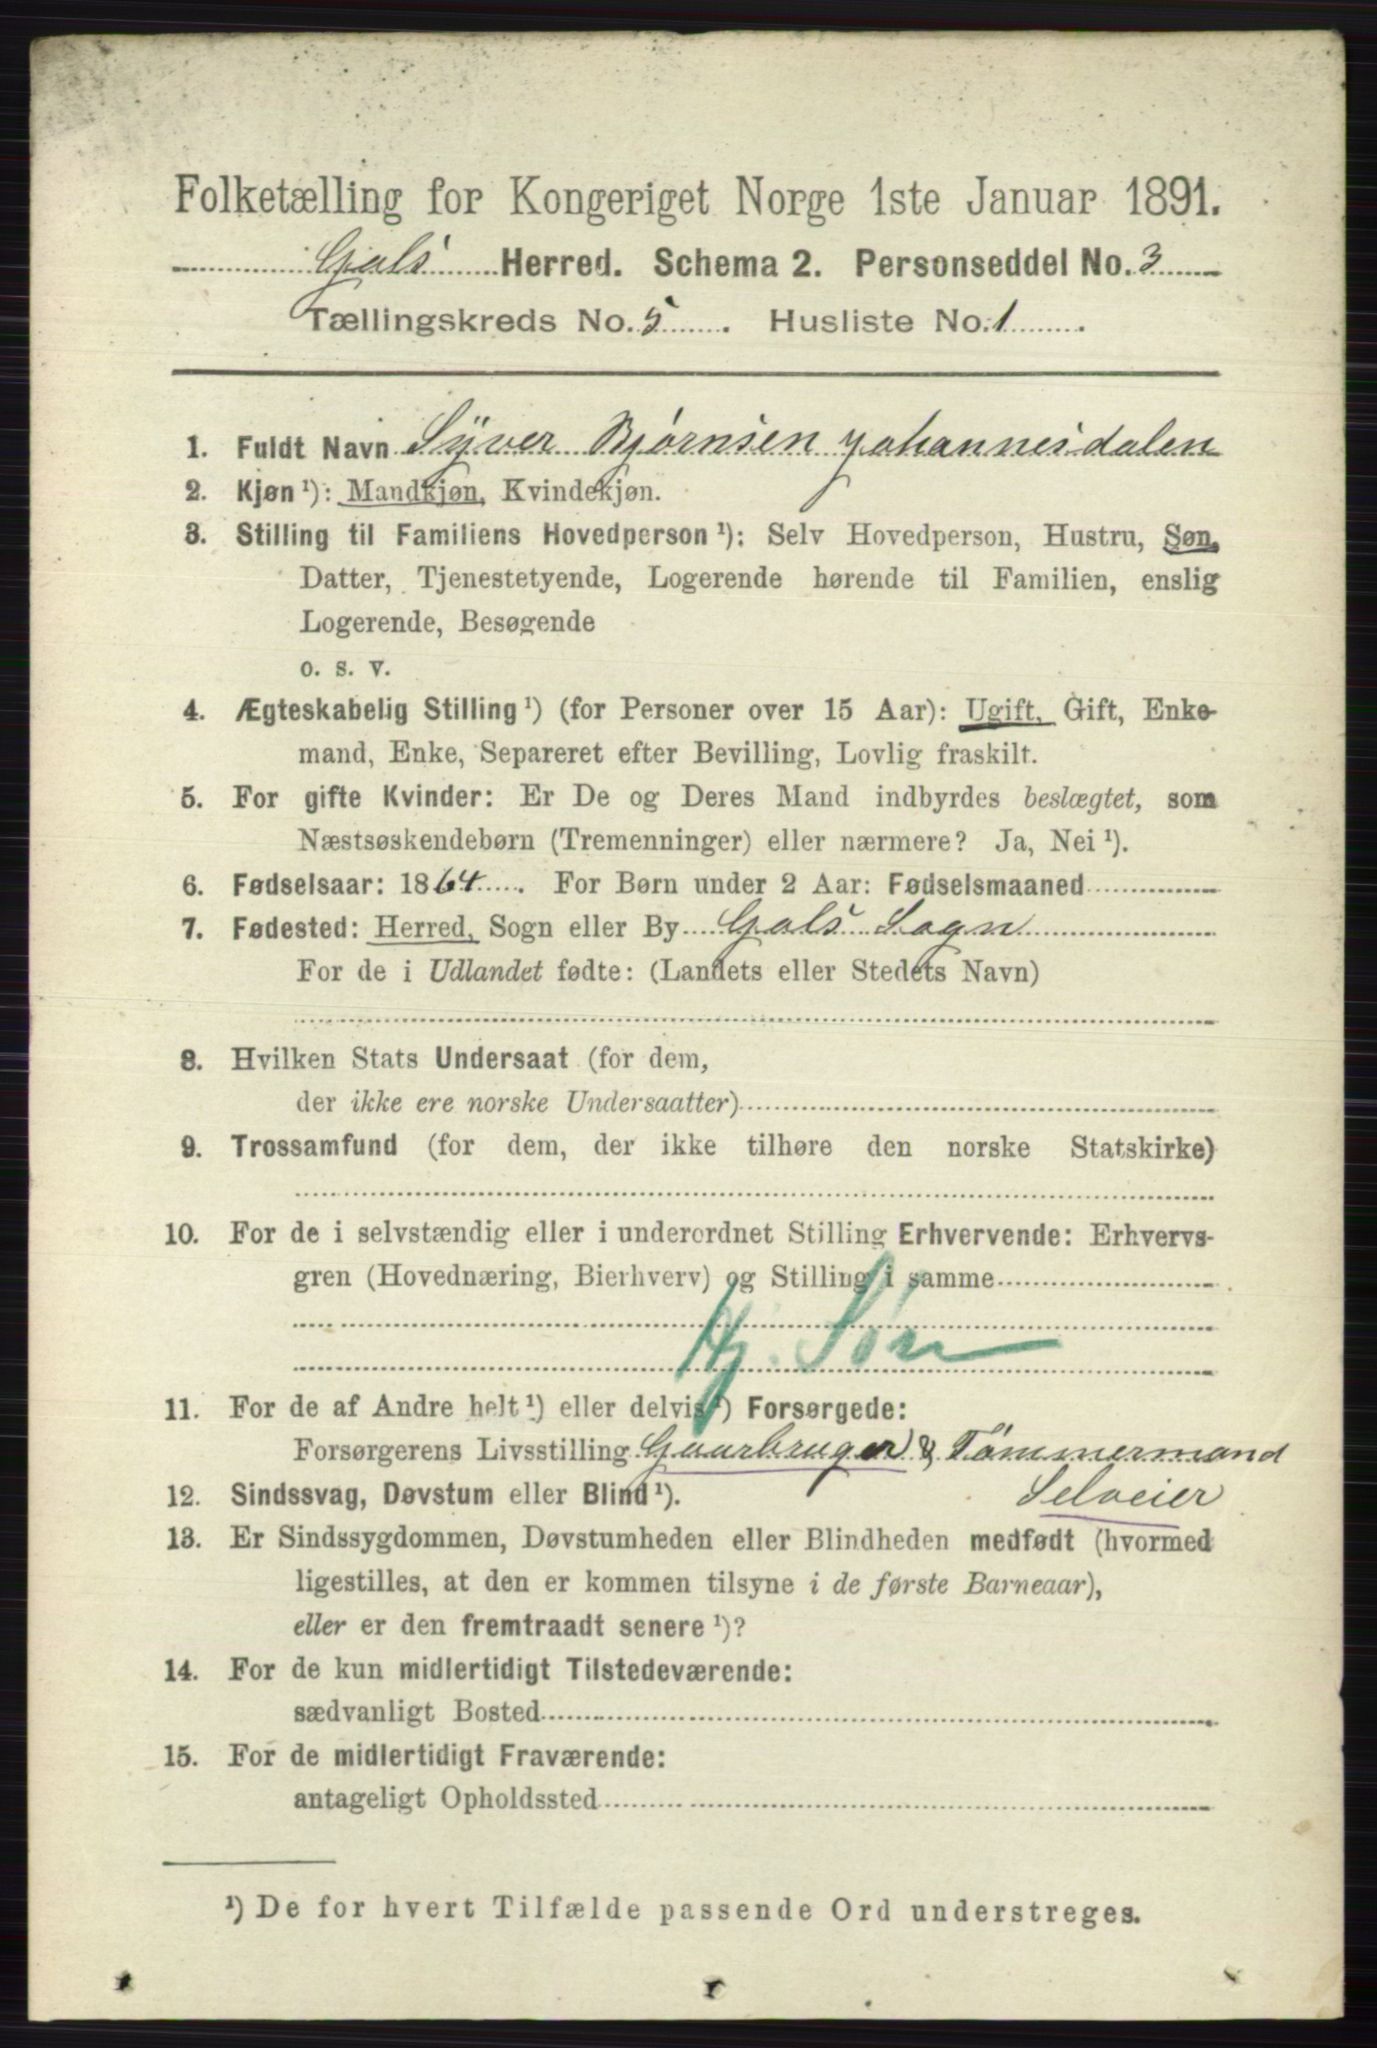 Folketælling for Kongeriget Norge 1ste Januar 1891.
Gols Herred. Schema 2. Personseddel No. 3
Tællingskreds No. 5. Husliste No. 1.
1. Fuldt Navn Syver Bjørnsen Johannesdalen
2. Kjøn ¹): Mandkjøn, Kvindekjøn.
3. Stilling til Familiens Hovedperson ¹): Selv Hovedperson, Hustru, Søn,
Datter, Tjenestetyende, Logerende hørende til Familien, enslig
Logerende, Besøgende
o. s. v.
4. Ægteskabelig Stilling ¹) (for Personer over 15 Aar): Ugift, Gift, Enke-
mand, Enke, Separeret efter Bevilling, Lovlig fraskilt.
5. For gifte Kvinder: Er De og Deres Mand indbyrdes beslægtet, som
Næstsøskendebørn (Tremenninger) eller nærmere? Ja, Nei ¹).
6. Fødselsaar: 1864. For Børn under 2 Aar: Fødselsmaaned
7. Fødested: Herred, Sogn eller By Gols Sogn
For de i Udlandet fødte: (Landets eller Stedets Navn)
8. Hvilken Stats Undersaat (for dem,
der ikke ere norske Undersaatter)
9. Trossamfund (for dem, der ikke tilhøre den norske Statskirke)
10. For de i selvstændig eller i underordnet Stilling Erhvervende: Erhvervs-
gren (Hovednæring, Bierhverv) og Stilling i samme
Hj. Søn
11. For de af Andre helt ¹) eller delvis ¹) Forsørgede:
Forsørgerens Livsstilling Gaarbruger & Tømmermand
Selveier
12. Sindssvag, Døvstum eller Blind ¹).
13. Er Sindssygdommen, Døvstumheden eller Blindheden medfødt (hvormed
ligestilles, at den er kommen tilsyne i de første Barneaar),
eller er den fremtraadt senere ¹)?
14. For de kun midlertidigt Tilstedeværende:
sædvanligt Bosted
15. For de midlertidigt Fraværende:
antageligt Opholdssted
¹) De for hvert Tilfælde passende Ord understreges.